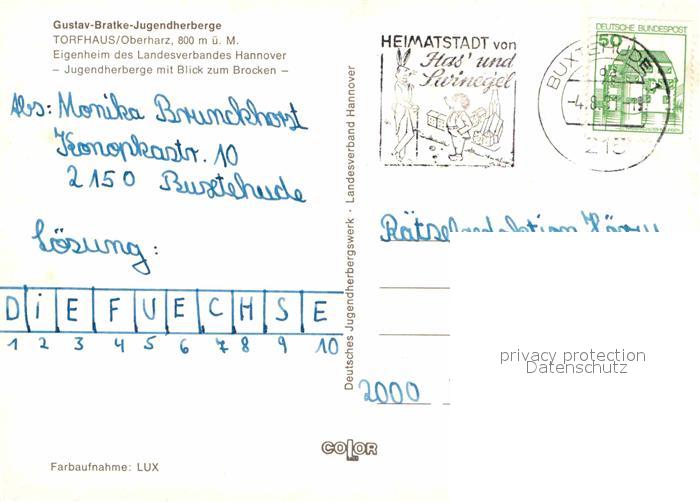 Gustav-Bratke-Jugendherberge
TORFHAUS/Oberharz, 800 m ü. M.
Eigenheim des Landesverbandes Hannover
– Jugendherberge mit Blick zum Brocken –
Abs: Monika Brunckhorst
Konopkastr. 10
2150 Buxtehude
Lösung:
DiE FUECHSE
1 2 3 4 5 6 7 8 9 10
Farbaufnahme: LUX
COLOR
Deutsches Jugendherbergswerk · Landesverband Hannover
HEIMATSTADT von
Has' und
Swinegel
BUXTEHUDE
-4.8.
215
DEUTSCHE BUNDESPOST
50
Rätselredaktion Hörzu
2000
privacy protection
Datenschutz